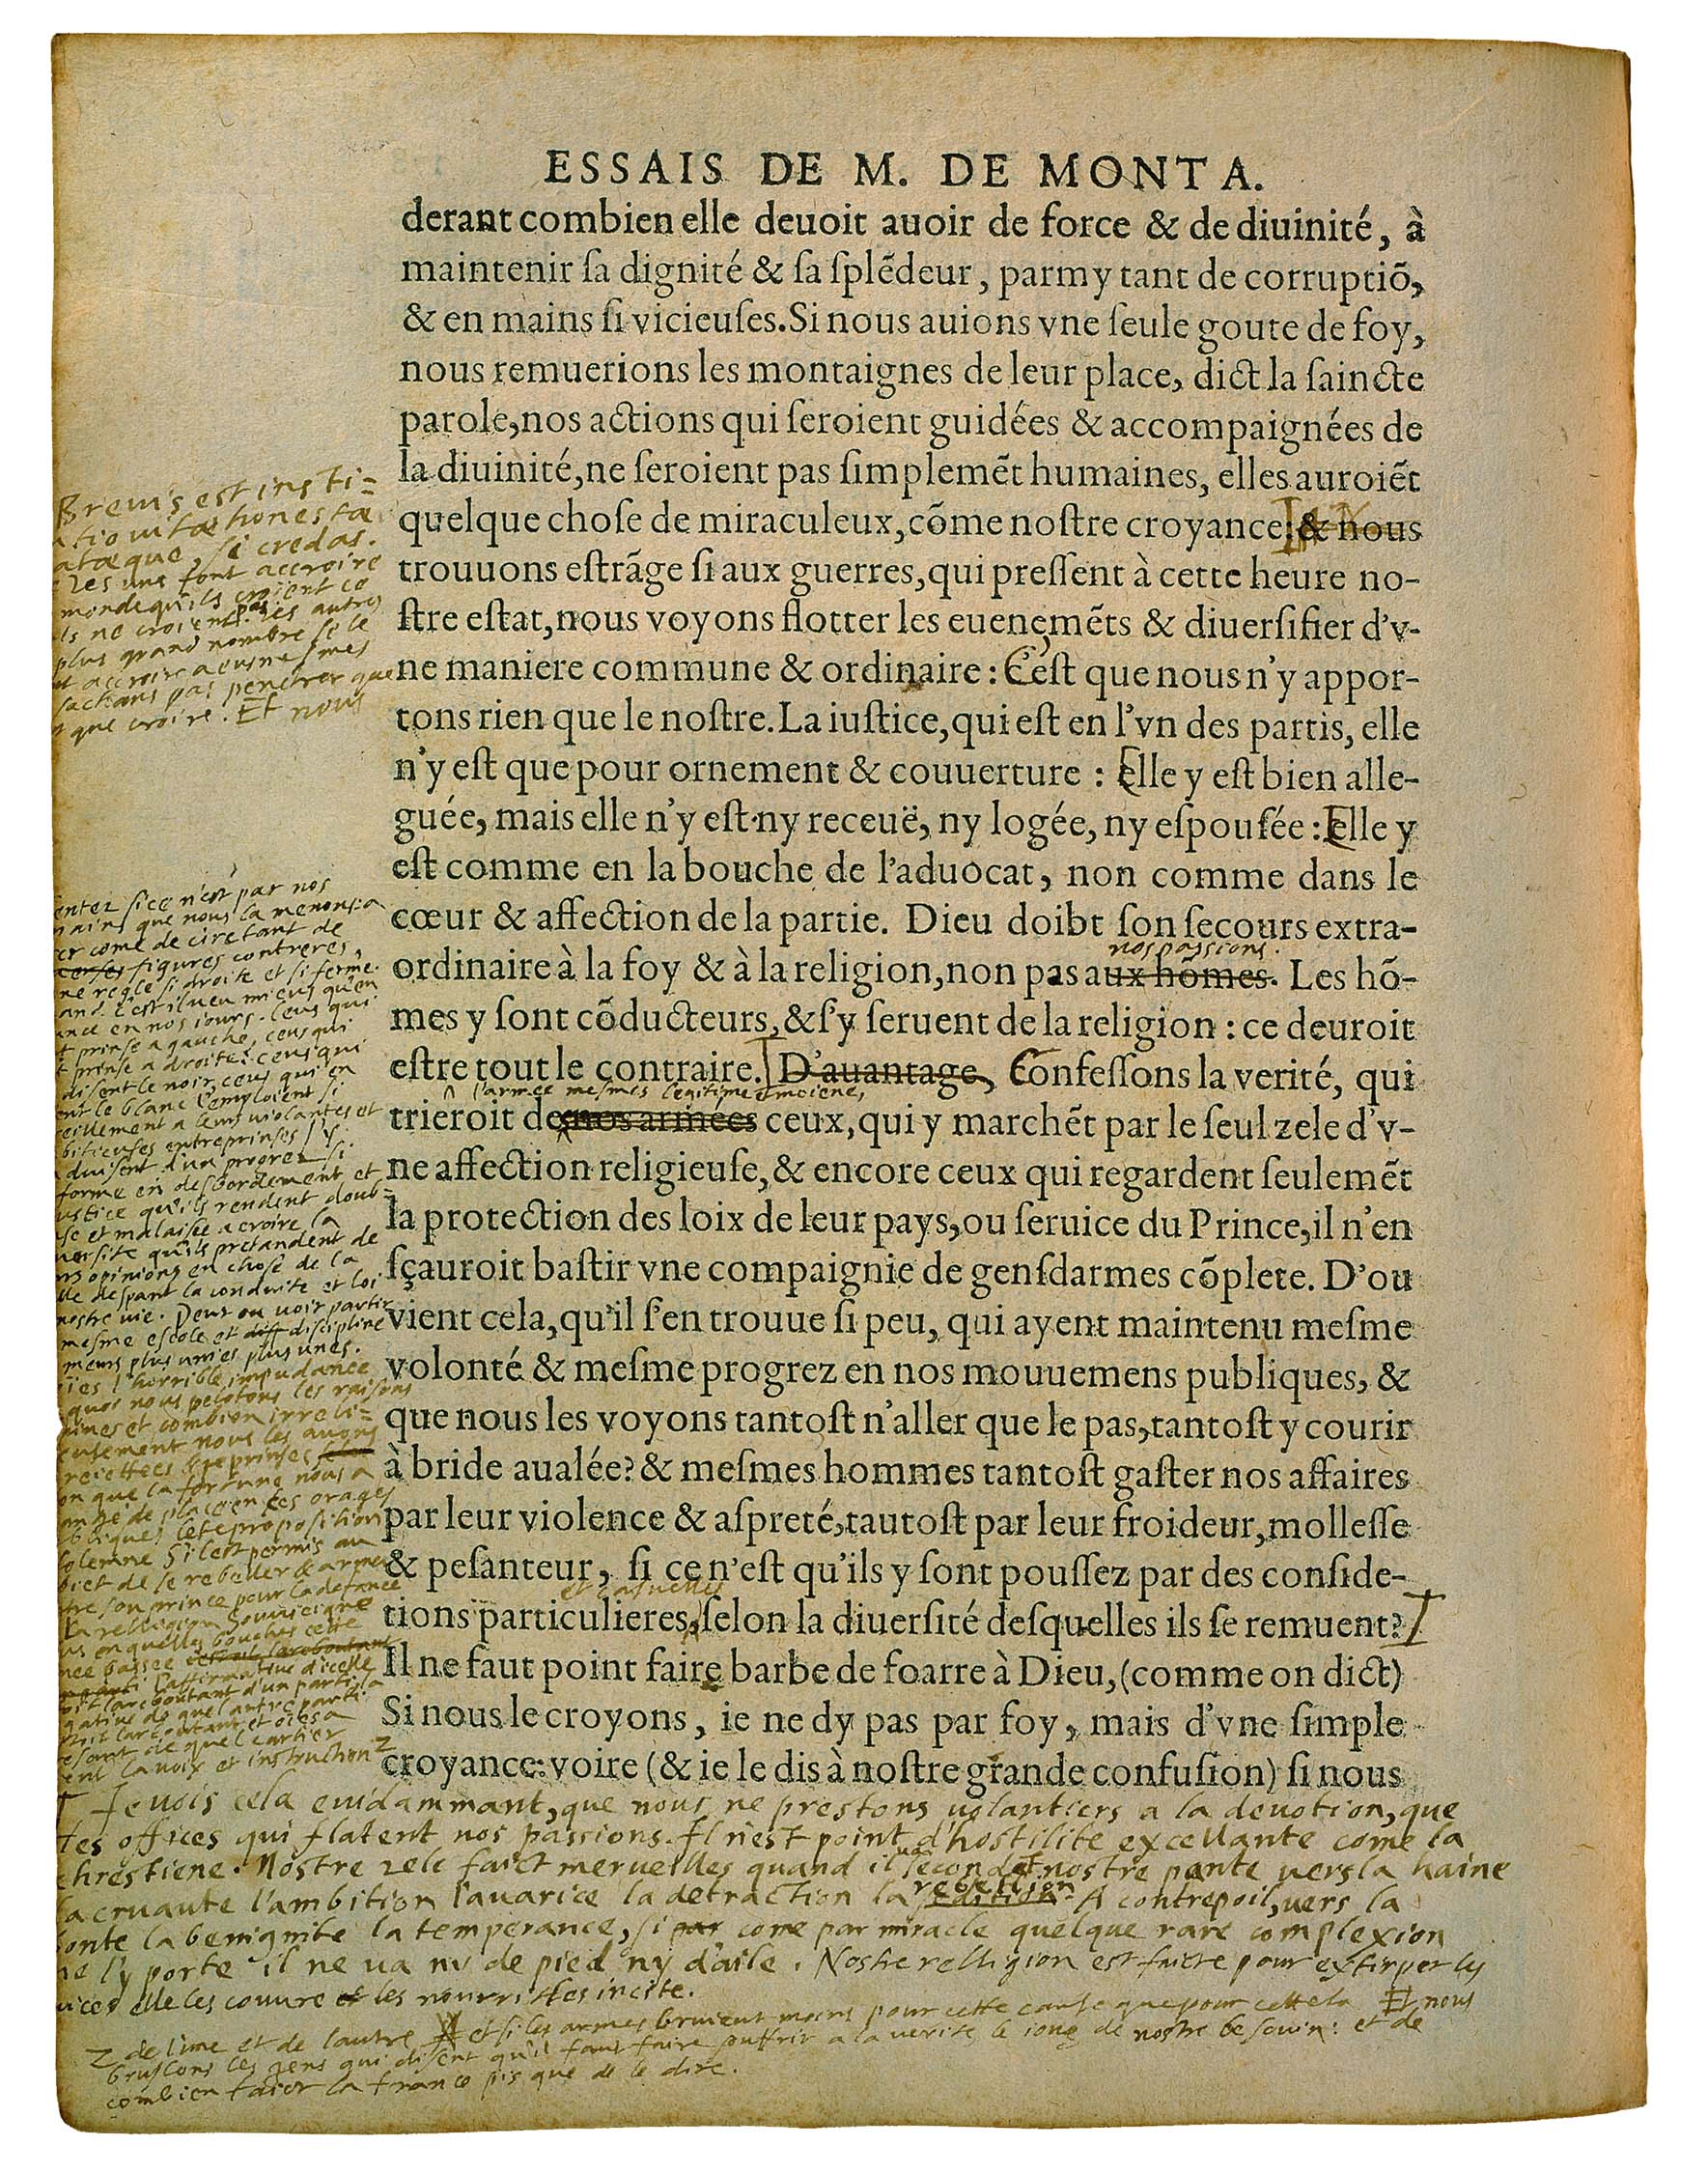 ESSAIS DE M. DE MONTA.
derant combien elle deuoit auoir de force & de diuinité, à
maintenir ſa dignité & ſa ſplẽdeur, parmy tant de corruptiõ,
& en mains ſi vicieuſes. Si nous auions vne ſeule goute de foy,
nous remuerions les montaignes de leur place, dict la ſaincte
parole, nos actions qui ſeroient guidées & accompaignées de
la diuinité, ne ſeroient pas ſimplemẽt humaines, elles auroiẽt
quelque choſe de miraculeux, cõme noſtre croyance: & nous
trouuons eſtrãge ſi aux guerres, qui preſſent à cette heure no-
ſtre eſtat, nous voyons flotter les euenemẽts & diuerſifier d'v-
ne maniere commune & ordinaire: C'eſt que nous n'y appor-
tons rien que le noſtre. La iuſtice, qui eſt en l'vn des partis, elle
n'y eſt que pour ornement & couuerture: Elle y eſt bien alle-
guée, mais elle n'y eſt ny receuë, ny logée, ny eſpouſée: Elle y
eſt comme en la bouche de l'aduocat, non comme dans le
cœur & affection de la partie. Dieu doibt ſon ſecours extra-
nos passions.
ordinaire à la foy & à la religion, non pas aux hõmes. Les hõ-
mes y ſont cõducteurs, & ſ'y ſeruent de la religion: ce deuroit
eſtre tout le contraire. D'auantage, Confeſſons la verité, qui
l'armee mesmes legitime et moiene,
trieroit de nos armées ceux, qui y marchẽt par le ſeul zele d'v-
ne affection religieuſe, & encore ceux qui regardent ſeulemẽt
la protection des loix de leur pays, ou ſeruice du Prince, il n'en
ſçauroit baſtir vne compaignie de genſdarmes cõplete. D'ou
vient cela, qu'il ſ'en trouue ſi peu, qui ayent maintenu meſme
volonté & meſme progrez en nos mouuemens publiques, &
que nous les voyons tantoſt n'aller que le pas, tantoſt y courir
à bride aualée? & meſmes hommes tantoſt gaſter nos affaires
par leur violence & aſpreté, tautoſt par leur froideur, molleſſe
& peſanteur, ſi ce n'eſt qu'ils y ſont pouſſez par des conſide-
et casuelles
tions particulieres, ſelon la diuerſité deſquelles ils ſe remuent?
Il ne faut point faire barbe de foarre à Dieu, (comme on dict)
Si nous le croyons, ie ne dy pas par foy, mais d'vne ſimple
croyance: voire (& ie le dis à noſtre grande confuſion) ſi nous
Breuis est insti=
tio uitæ honestæ
atæque, si credas.
Les uns font accroire
monde qu'ils croient ce
ls ne croient pas. Les autres
plus grand nombre se le
accroire a eus mesmes
sachans pas penetrer que
que croire. Et nous
enter si ce n'est par nos
mains que nous la menons: a
er come de cire tant de
figures contreres,
ne regle si droite et si ferme.
and s'est il ueu mieus qu'en
ance en nos iours. Ceus qui
prinse a gauche, ceus qui
prinse a droite, ceus qui
disent le noir, ceus qui en
ent le blanc l'emploient si
reillement a leurs uiolantes et
bitieuses entreprinses, s'y
duisent d'un progrez si
forme en desbordement et
ustice qu'ils rendent doub-
se et malaisee a croire la
uersite qu'ils pretandent de
urs opinions en chose de la
lle despant la conduite et loi
nostre uie. Peut on uoir partir
mesme escole et discipline
meurs plus unies plus unes.
ies l'horrible impudance
quoi nous pelotons les raisons
uines et combien irreli=
eusement nous les auons
reiettees et reprinses
on que la fortune nous a
ange de place en ces orages
bliques. Cete proposition
solemne S'il est permis au
biet de se rebeller et armer
tre son prince pour la defance
la relligion souuieigne
us en quelles bouches cette
nee passee
l'affirmatiue d'icelle
oit l'arcboutant d'un parti la
gatiue de quel autre parti
estoit l'arcboutant et oies a
resant de quel cartier
ent la uois et instruction
Je uois cela euidammant, que nous ne prestons uolantiers a la deuotion, que
les offices qui flatent nos passions. Il n'est point d'hostilite excellante come la
chrestiene. Nostre zele faict merueilles quand il ua secondant nostre pante uers la haine
la cruaute l'ambition l'auarice la detraction la rebellion. A contrepoil, uers la
bonte la benignite la temperance, si come par miracle quelque rare complexion
ne l'y porte il ne ua ny de pied ny d'aile. Nostre relligion est faicte pour extirper les
uices elle les couure les nourrit les incite.
de l'une et de l'autre et si les armes bruient moins pour cette cause que pour cette la Et nous
bruslons les gens qui disent qu'il faut faire souffrir a la uerite le ioug de nostre besouin: et de
combien faict la france pis que de le dire.